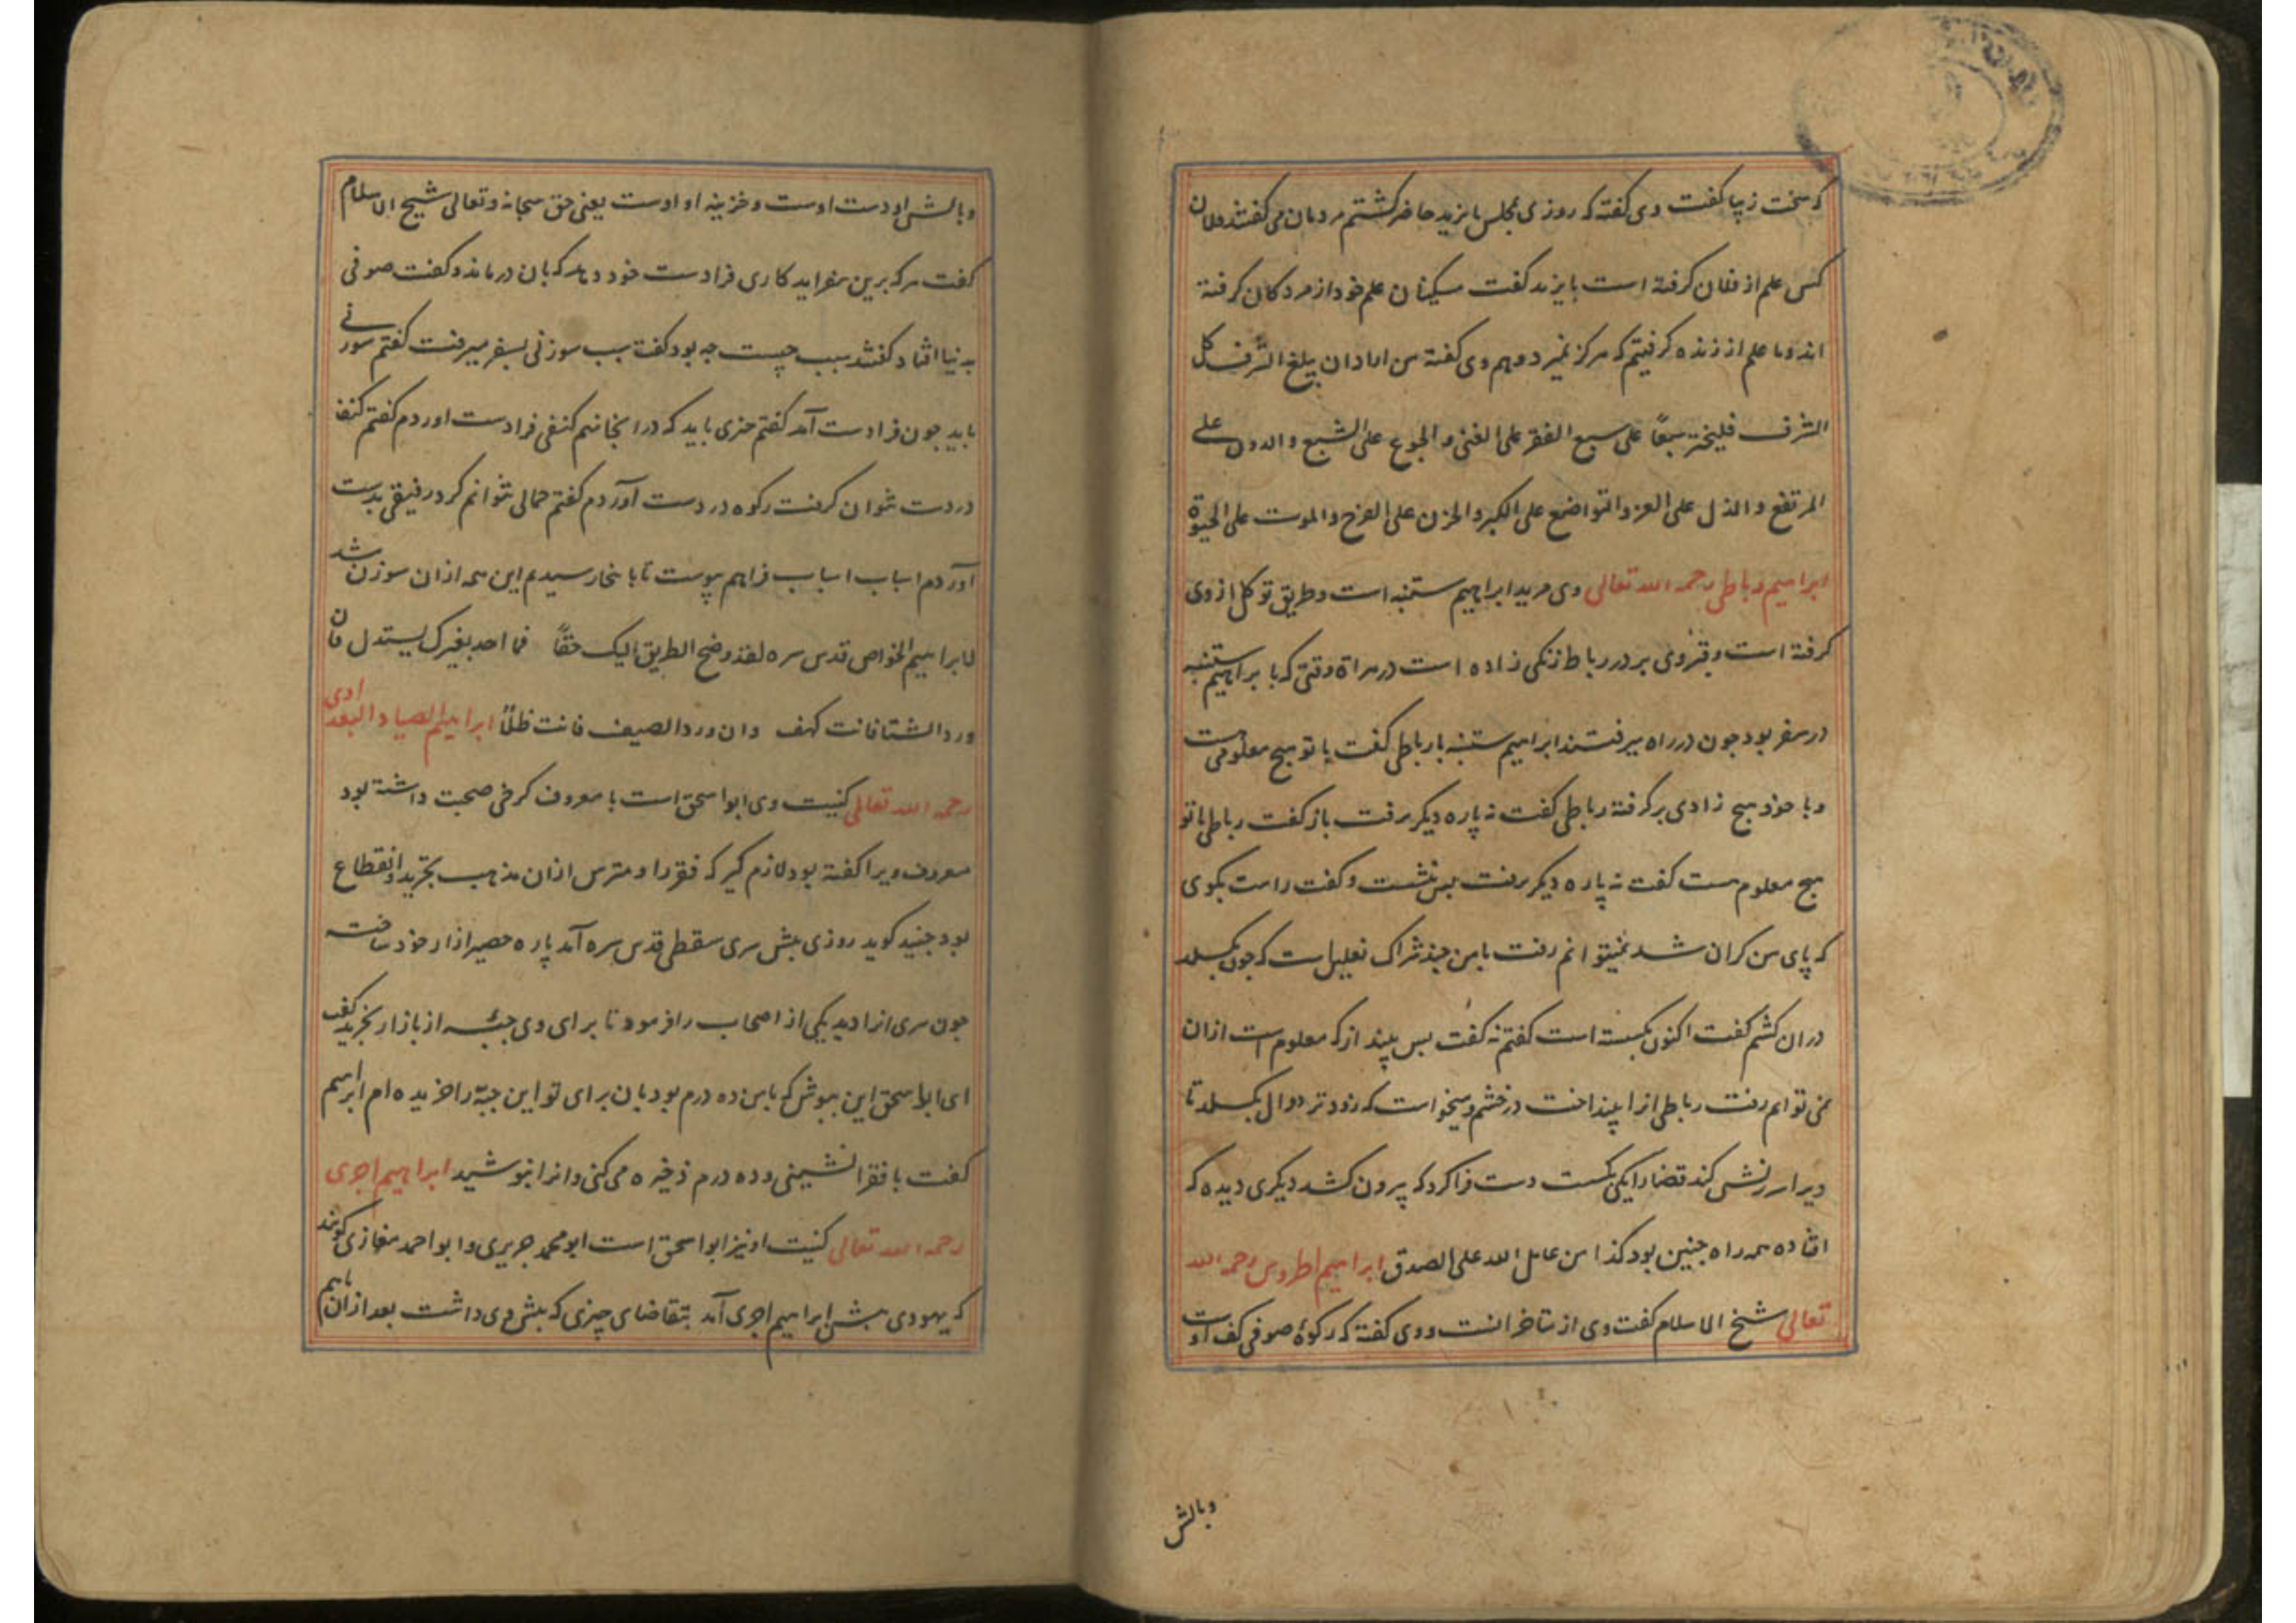 که سخت زیبا کفت وی کفته که روزی بمجلس بایزید حاضر کشتم مردمان می کفتند فلان
کس علم از فلان کرفته است بایزید کفت مسکینان علم خود از مردکان کرفته
اند و ما علم از زنده کرفتیم که هرکز نمیرد و هم وی کفته من اراد ان یبلغ الشرف کل
الشرف فلیختر سبعاً علی سبع الفقر علی الغنی و الجوع علی الشبع و الدون علی
المرتفع و الذل علی العز و التواضع علی الکبر و الحزن علی الفرح و الموت علی الحیوة
ابراهیم رباطی رحمه الله تعالی وی مرید ابراهیم ستنبه است و طریق توکل از وی
کرفته است و قبر وی بر در رباط زنکی زاده است در هراة وقتی که با ابراهیم ستنبه
در سفر بود جون در راه میرفتند ابراهیم ستنبه با رباطی کفت با تو هیج معلومی هست
و با خود هیج زادی برکرفته رباطی کفت نه پاره دیکر برفت باز کفت رباطی با تو
هیج معلوم هست کفت نه پاره دیکر برفت بس بنشست و کفت راست بکوی
که پای من کران شد نمیتوانم رفت با من جند شراک نعلین است که جون بکسلد
دران کشم کفت اکنون بکسسته است کفتم نه کفت بس بیندازکه معلوم است ازان
نمی توانم رفت رباطی انرا بینداخت در خشم و میخواست که زودتر دوال بکسلد تا
ویرا سرزنش کند قضا را یکی بکسست دست فراکرد که بیرون کشد دیکری دید که
افتاده همه راه جنین بود کذا من عامل الله علی الصدق ابراهیم اطروس رحمه الله
تعالی شیخ الاسلام کفت وی از متاخرانست و وی کفته که رکوهٔ صوفی کف اوست
وبالش
وبالش او دست اوست و خزینه او اوست یعنی حق سبحانه و تعالی شیخ الاسلام
کفت هرکه برین بفزاید کاری فرادست خود دهد که بان درماند و کفت صوفی
بدنیا افتاد کفتند سبب چیست جه بود کفت سبب سوزنی بسفر میرفت کفتم سوزنی
باید جون فرادست آمد کفتم چیزی باید که در انجا نهم کنفی فرادست اوردم کفتم کنف
در دست نتوان کرفت رکوه در دست آوردم کفتم حمالی نتوانم کرد رفیقی بدست
آوردم اسباب اسباب فراهم پیوست تا بانجا رسیدم این همه ازان سوزن شد
لابراهیم الخواص قدس سره لقد وضح الطریق الیک حقاً فما احد بغیرک یستدل فان
ورد الشتا فانت کهف وان ورد الصیف فانت ظلاً ابراهیم الصیاد البغدادی
رحمه الله تعالی کنیت وی ابواسحق است با معروف کرخی صحبت داشته بود
معروف ویرا کفته بود لازم کیر که فقر را و مترس ازان مذهب بتجرید و انقطاع
بود جنید کوید روزی بیش سری سقطی قدس سره آمد پاره حصیر ازار خود ساخته
جون سری انرا دید یکی از اصحاب را فرمود تا برای وی جبّه از بازار بخرید کفت
ای ابا اسحق این بپوش که با من ده درم بود بان برای تو این جبّه را خریده ام ابراهیم
کفت با فقرا نشینی و ده درم ذخیره می کنی و انرا نپوشید ابراهیم اجری
رحمه الله تعالی کنیت او نیز ابواسحق است ابومحمد جریری و ابواحمد مغازی کویند
که یهودی بیش ابراهیم اجری آمد بتقاضای چیزی که بیش وی داشت بعد ازان باهم